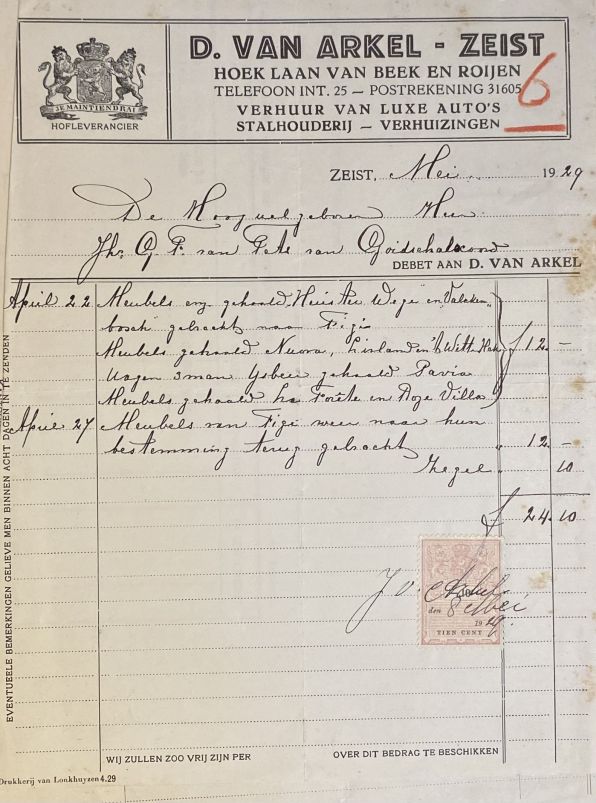 D. VAN ARKEL - ZEIST
HOEK LAAN VAN BEEK EN ROIJEN
TELEFOON INT. 25 — POSTREKENING 31605
VERHUUR VAN LUXE AUTO'S
STALHOUDERIJ — VERHUIZINGEN
6
JE MAINTIENDRAI
HOFLEVERANCIER
ZEIST, Mei 1929
De Hoog welgeboren Heer
Jhr. G. F. van Tets van Goidschalxoord
DEBET AAN D. VAN ARKEL
April 22 Meubels enz gehaald Huis ter Wege en Valcken
bosch gebracht naar Figi
Meubels gehaald Nuova, Linland en 't Witte Huis f 12.-
Wagen 3 man gehaald Pavia
Meubels gehaald La Forête en Roze Villa
April 27 Meubels van Figi weer naar hun
bestemming terug gebracht " 12.-
Zegel " 10
f 24.10
J v. Arkel
den 8 Mei
1929
TIEN CENT
EVENTUEELE BEMERKINGEN GELIEVE MEN BINNEN ACHT DAGEN IN TE ZENDEN
WIJ ZULLEN ZOO VRIJ ZIJN PER OVER DIT BEDRAG TE BESCHIKKEN
Drukkerij van Lonkhuyzen 4.29